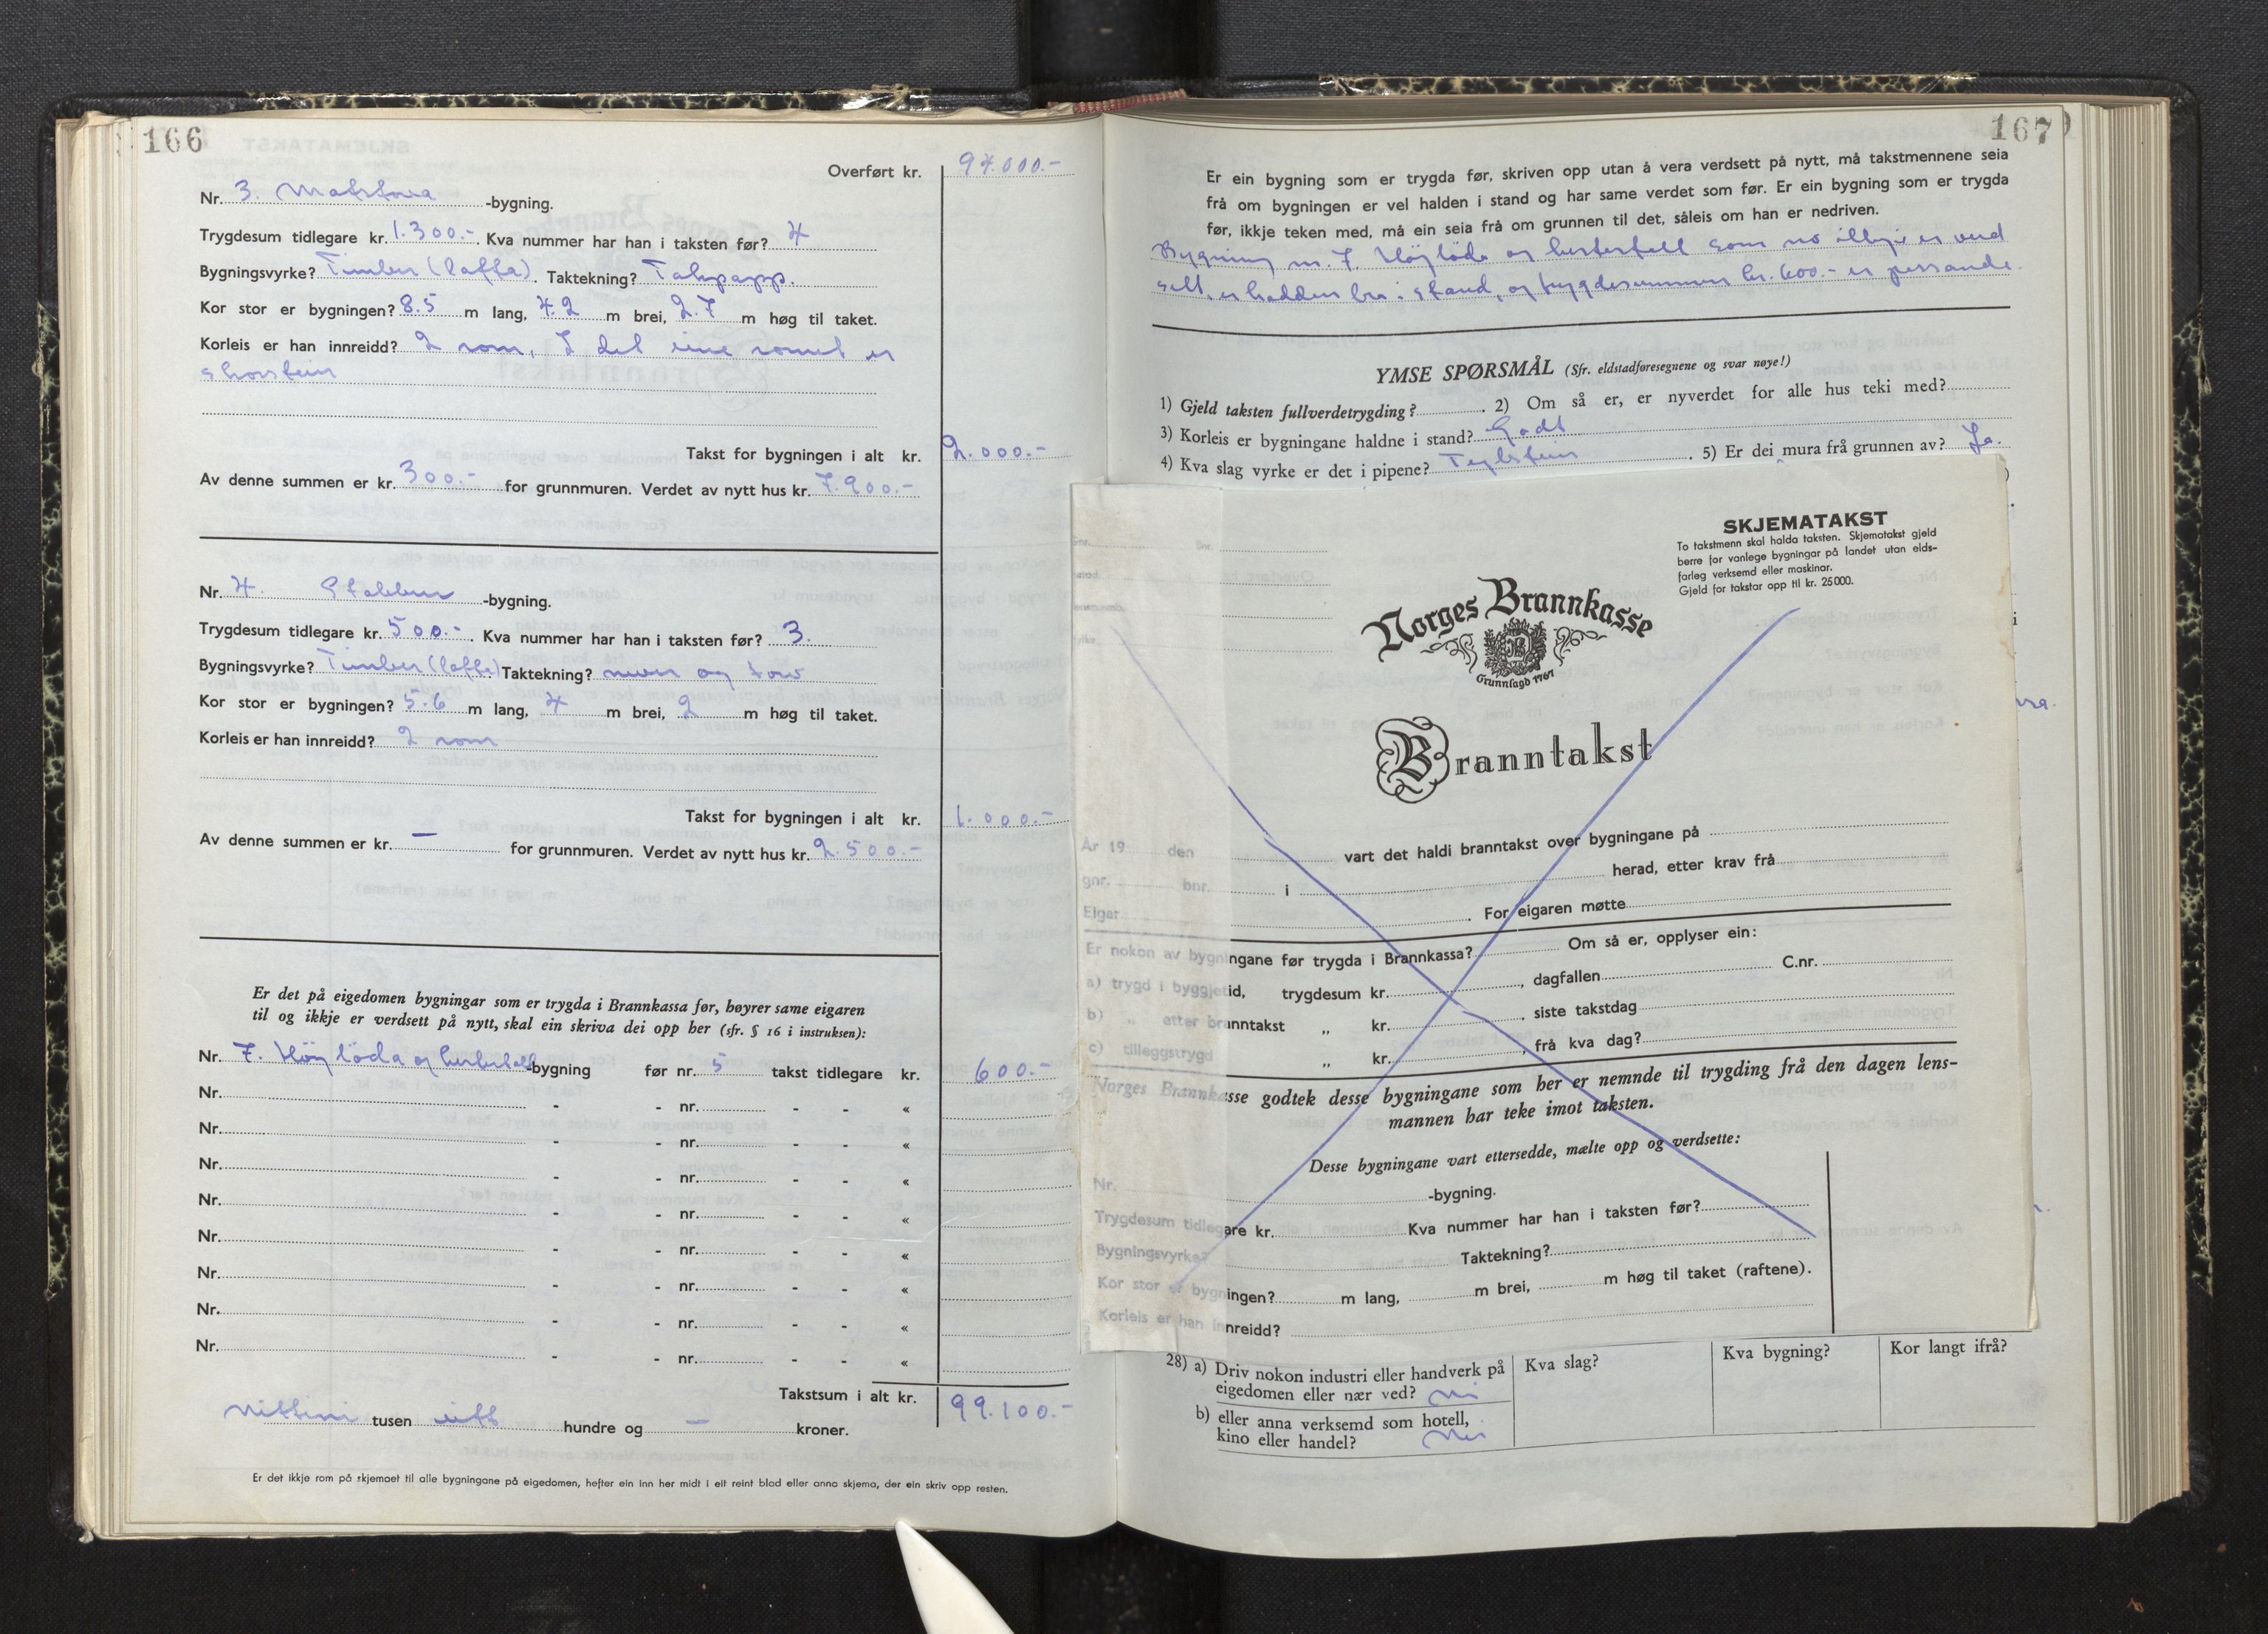 166
Overført kr. 94.000.-
Nr. 3. Matstova -bygning.
Trygdesum tidlegare kr. 1.300.- Kva nummer har han i taksten før? 4
Bygningsvyrke? Timber (lafta). Taktekning? Takpapp.
Kor stor er bygningen? 8.5 m lang, 4.2 m brei, 2.7 m høg til taket.
Korleis er han innreidd? 2 rom, I det eine romet er
skorstein
Takst for bygningen i alt kr. 2.000.-
Av denne summen er kr. 300.- for grunnmuren. Verdet av nytt hus kr. 7.900.-
Nr. 4. Stabbur -bygning.
Trygdesum tidlegare kr. 500.- Kva nummer har han i taksten før? 3.
Bygningsvyrke? Timber (lafta) Taktekning? never og torv
Kor stor er bygningen? 5.6 m lang, 4 m brei, 2 m høg til taket.
Korleis er han innreidd? 2 rom
Takst for bygningen i alt kr. 1.000.-
Av denne summen er kr. — for grunnmuren. Verdet av nytt hus kr. 2.500.-
Er det på eigedomen bygningar som er trygda i Brannkassa før, høyrer same eigaren
til og ikkje er verdsett på nytt, skal ein skriva dei opp her (sfr. § 16 i instruksen):
Nr. 7. Höylöda og hestestall -bygning før nr. 5 takst tidlegare kr. 600.-
Nr. - - nr. - - «
Nr. - - nr. - - «
Nr. - - nr. - - «
Nr. - - nr. - - «
Nr. - - nr. - - «
Nr. - - nr. - - «
Nr. - - nr. - - «
Nr. - - nr. - - «
Takstsum i alt kr. 99.100.-
Nittini tusen eitt hundre og — kroner.
Er det ikkje rom på skjemaet til alle bygningane på eigedomen, hefter ein inn her midt i eit reint blad eller anna skjema, der ein skriv opp resten.
167
Er ein bygning som er trygda før, skriven opp utan å vera verdsett på nytt, må takstmennene seia
frå om bygningen er vel halden i stand og har same verdet som før. Er ein bygning som er trygda
før, ikkje teken med, må ein seia frå om grunnen til det, såleis om han er nedriven.
Bygning nr. 7. Höylöda og hestestall som no ikkje er verd
sett, er halden bra i stand, og trygdesummen kr. 600.- er passande.
YMSE SPØRSMÅL (Sfr. eldstadføresegnene og svar nøye!)
1) Gjeld taksten fullverdetrygding? 2) Om så er, er nyverdet for alle hus teki med?
3) Korleis er bygningane haldne i stand? Godt
4) Kva slag vyrke er det i pipene? Teglstein. 5) Er dei mura frå grunnen av? Ja.
SKJEMATAKST
To takstmenn skal halda taksten. Skjematakst gjeld
berre for vanlege bygningar på landet utan elds-
farleg verksemd eller maskinar.
Gjeld for takstar opp til kr. 25 000.
Gnr. Bnr.
Norges Brannkasse
Grunnlagd 1767
Branntakst
År 19 den vart det haldi branntakst over bygningane på
gnr. bnr. i herad, etter krav frå
Eigar . For eigaren møtte
Er nokon av bygningane før trygda i Brannkassa? Om så er, opplyser ein:
a) trygd i byggjetid, trygdesum kr. , dagfallen C.nr.
b) „ etter branntakst „ kr. , siste takstdag
c) tilleggstrygd „ kr. , frå kva dag?
Norges Brannkasse godtek desse bygningane som her er nemnde til trygding frå den dagen lens-
mannen har teke imot taksten.
Desse bygningane vart ettersedde, mælte opp og verdsette:
Nr. -bygning.
Trygdesum tidlegare kr. Kva nummer har han i taksten før?
Bygningsvyrke? Taktekning?
Kor stor er bygningen? m lang, m brei, m høg til taket (raftene).
Korleis er han innreidd?
28) a) Driv nokon industri eller handverk på Kva slag? Kva bygning? Kor langt ifrå?
eigedomen eller nær ved? Nei
b) eller anna verksemd som hotell,
kino eller handel? Nei